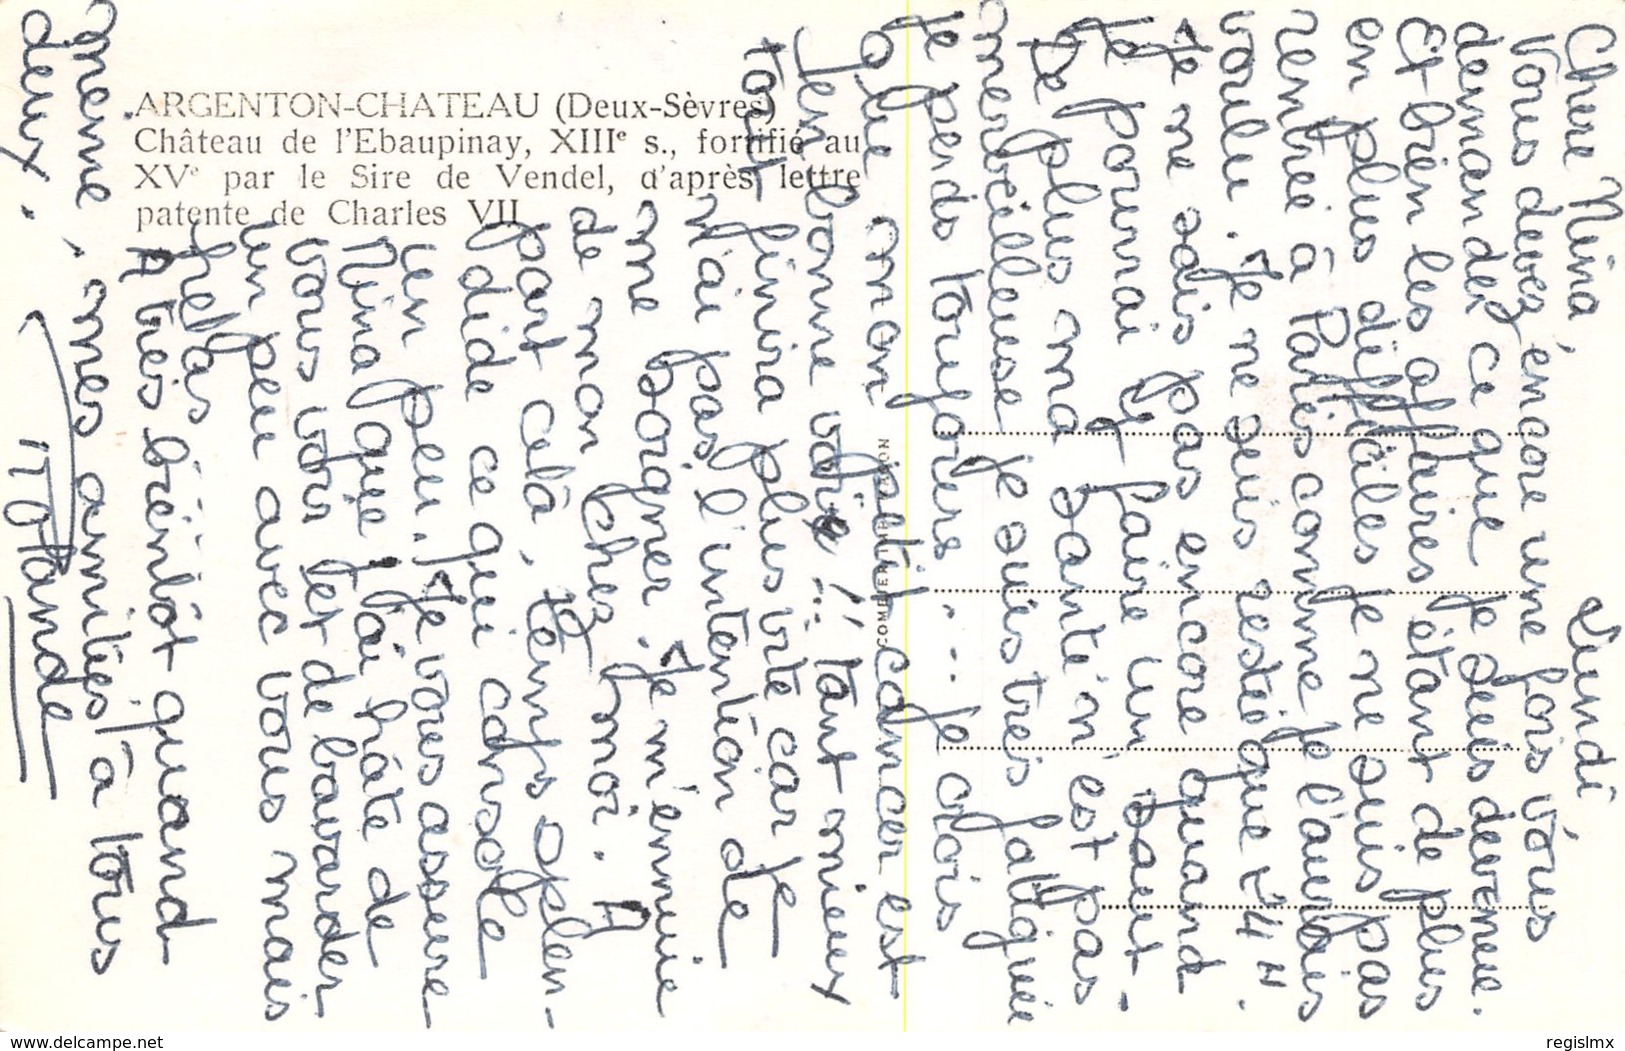 ARGENTON-CHATEAU (Deux-Sèvres)
Château de l'Ebaupinay, XIIIe s., fortifié au
XVe par le Sire de Vendel, d'après lettre
patente de Charles VII
COMBIER IMP. MACON
Lundi
Chère Nina,
Vous devez encore une fois vous
demander ce que je suis devenue.
Et bien les affaires étant de plus
en plus difficiles je ne suis pas
rentrée à Paris comme je l'aurais
voulu. Je ne suis restée que 24 H.
Je ne sais pas encore quand
je pourrai y faire un saut.
De plus ma santé n'est pas
merveilleuse je suis très fatiguée
je perds toujours .... je crois
que mon petit cancer est
en bonne voie !! tant mieux
tout finira plus vite car je
n'ai pas l'intention de
me soigner. Je m'ennuie
de mon cher moi. A
part celà, temps splen-
dide ce qui console
un peu. Je vous assure
Nina que j'ai hâte de
vous voir et de bavarder
un peu avec vous mais
hélas
A très bientôt quand
même. mes amitiés à tous
deux.
Yolande
delcampe.net
regislmx